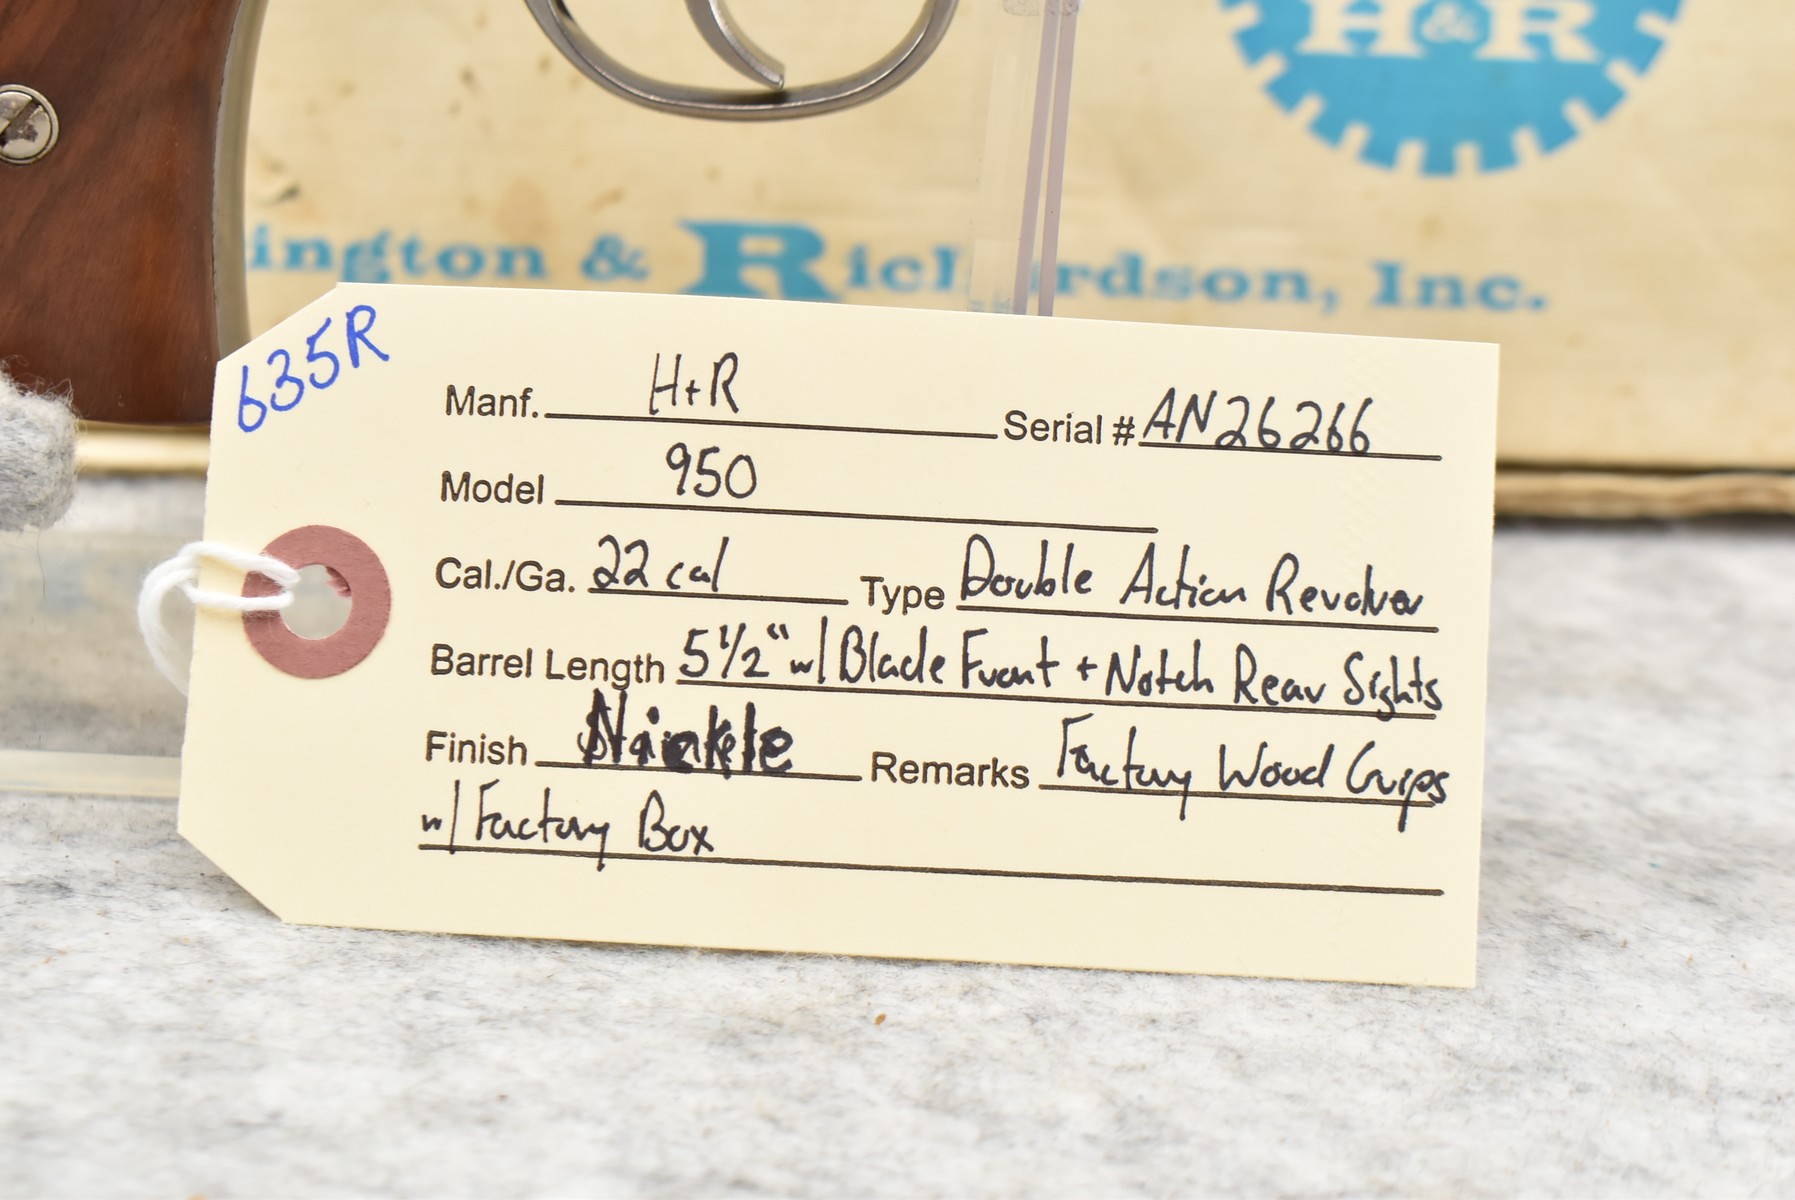 H&R
ington & Richardson, Inc.
635R
Manf. H+R Serial # AN26266
Model 950
Cal./Ga. 22 cal Type Double Action Revolver
Barrel Length 5 1/2" w/ Blade Front + Notch Rear Sights
Finish Ninkle Remarks Factory Wood Grips
w/ Factory Box